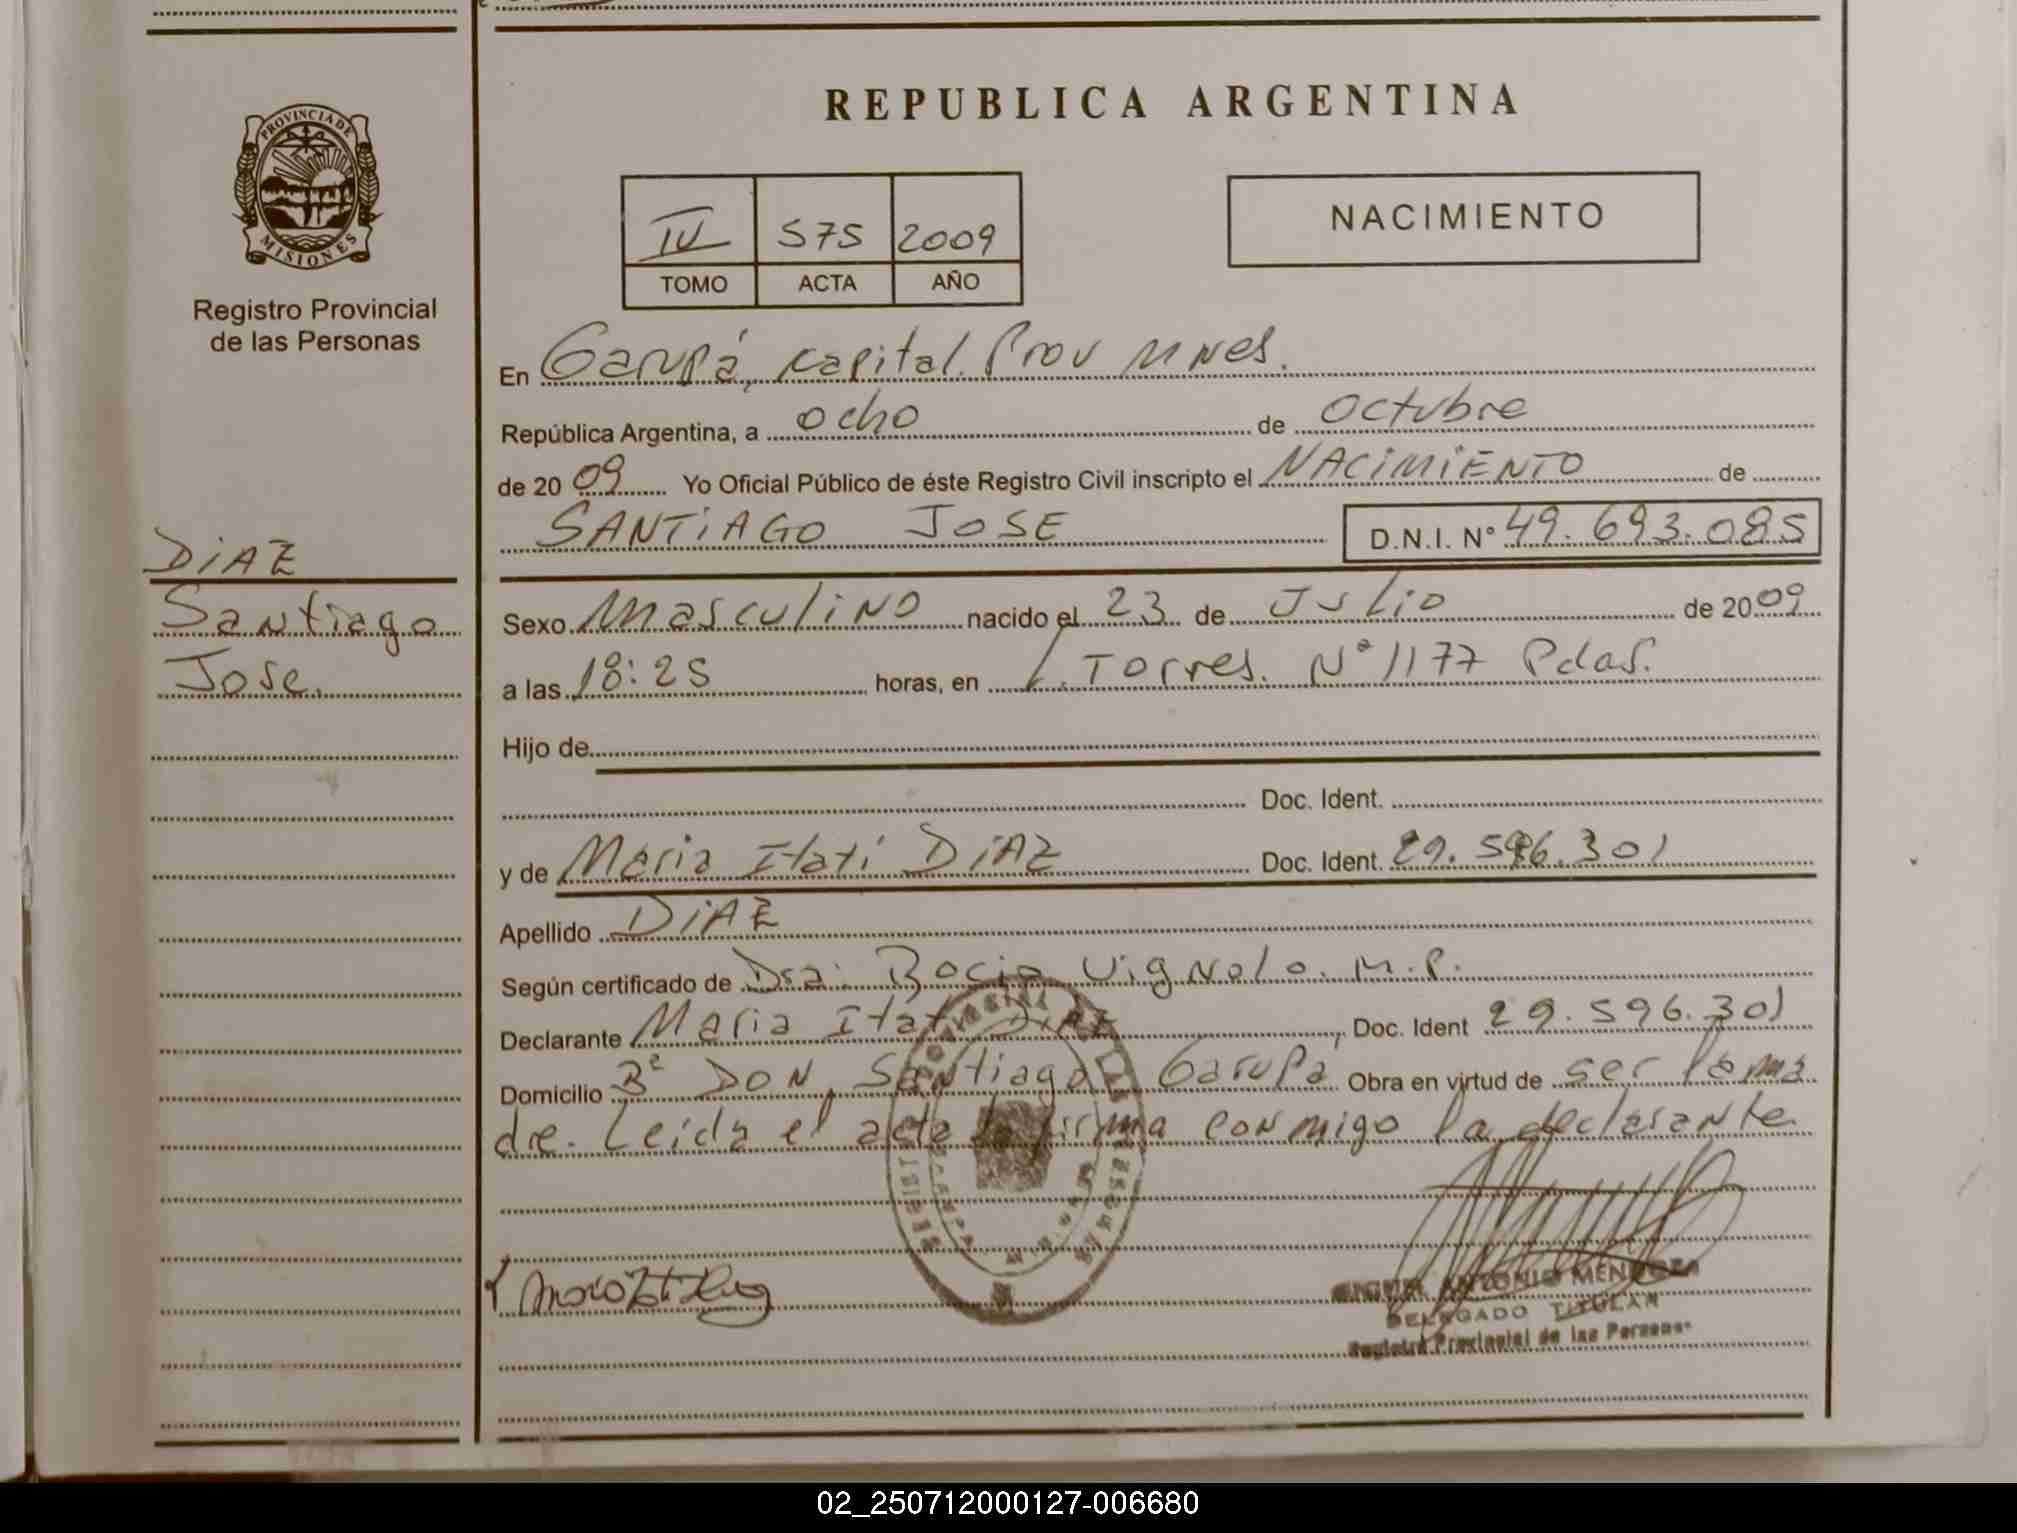 REPUBLICA ARGENTINA
PROVINCIA DE
MISIONES
Registro Provincial
de las Personas
IV 575 2009
TOMO ACTA AÑO
NACIMIENTO
En Garupá, Kapital. Prov Mnes.
República Argentina, a ocho de Octubre
de 2009 Yo Oficial Público de éste Registro Civil inscripto el NACIMIENTO de
SANTIAGO JOSE D.N.I. Nº 49.693.085
DIAZ
Santiago
Jose.
Sexo Masculino nacido el 23 de Julio de 2009
a las 18:25 horas, en L. Torres. Nº 1177 Pdas.
Hijo de
Doc. Ident.
y de Maria Itatí DIAZ Doc. Ident. 29.596.301
Apellido DIAZ
Según certificado de Dra: Rocio Vignolo. M.P.
Declarante Maria Itatí DIAZ, Doc. Ident 29.596.301
Domicilio Bº DON Santiago Garupa Obra en virtud de ser la ma
dre. Leida el acta la firma conmigo la declarante
ANTONIO MENDOZA
DELEGADO TITULAR
Registro Provincial de las Personas
02_250712000127-006680